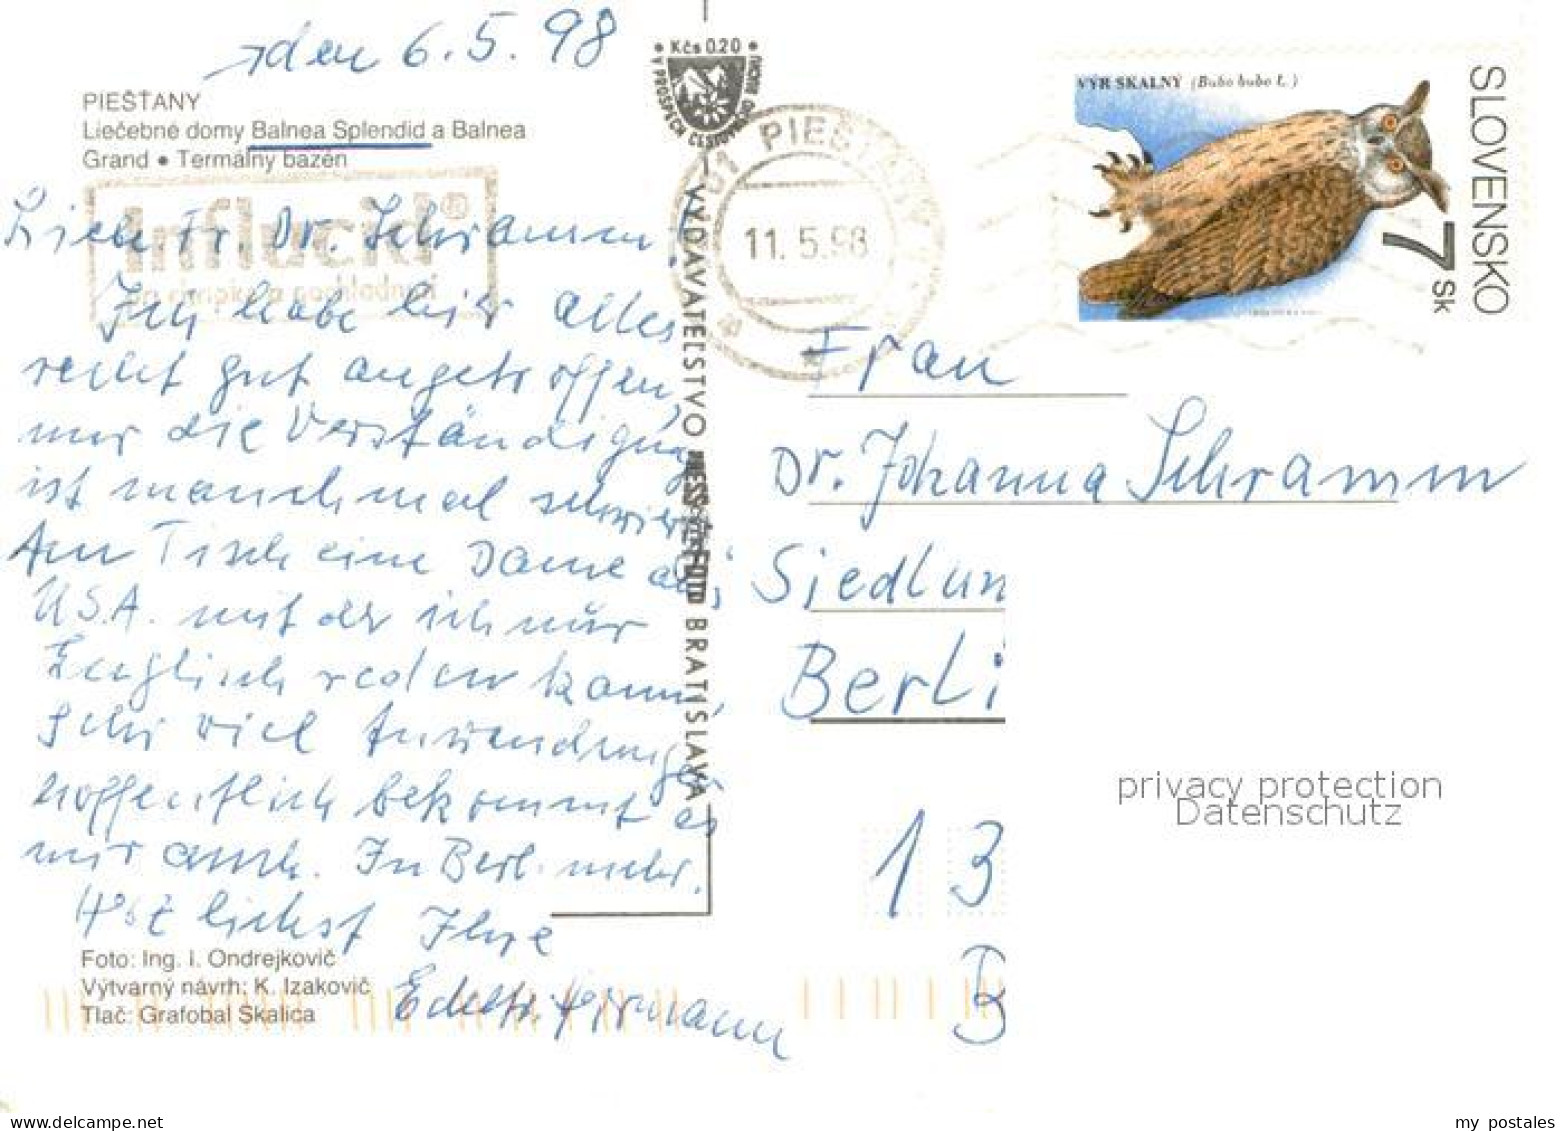 den 6.5.98
PIEŠŤANY
Liečebné domy Balnea Splendid a Balnea
Grand • Termálny bazén
Influcid®
pri chrípke a
Liebe Fr. Dr. Schramm!
Ich habe hier alles
recht gut angetroffen,
nur die Verständigung
ist manchmal schwierig
Am Tisch eine Dame aus
USA. mit der ich nur
Englisch reden kann,
Sehr viel Anwendungen
hoffentlich bekommt es
mir auch. In Berl. mehr.
Herzlichst Ihre
Edith Herrmann
Foto: Ing. I. Ondrejkovič
Výtvarný návrh: K. Izakovič
Tlač: Grafobal Skalica
• Kčs 0.20 •
V PROSPECH
VYDAVATEĽSTVO PRESSFOTO BRATISLAVA
01 PIEŠŤANY
11.5.98
VÝR SKALNÝ (Bubo bubo L.)
SLOVENSKO
7 Sk
Frau
Dr. Johanna Schramm
Siedlun
Berli
13
privacy protection
Datenschutz
my postales